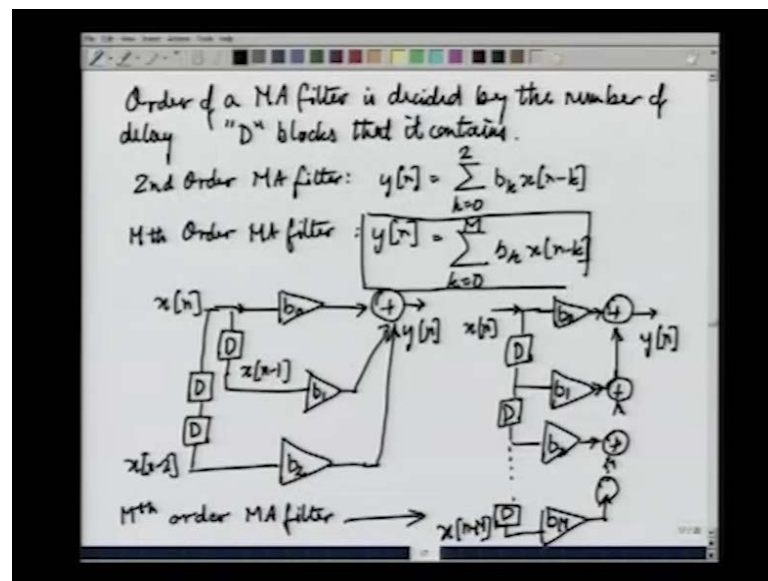 Order of a MA filter is decided by the number of
delay "D" blocks that it contains.
2nd Order MA filter: y[n] = 2 ∑ k=0 bk x[n-k]
Mth Order MA filter : y[n] = M ∑ k=0 bk x[n-k]
x[n] b0 + y[n]
D x[n-1] b1
D
D
x[n-2] b2
x[n] b0 + y[n]
D
b1 +
D
b2 +
D
x[n-M] bM
Mth order MA filter